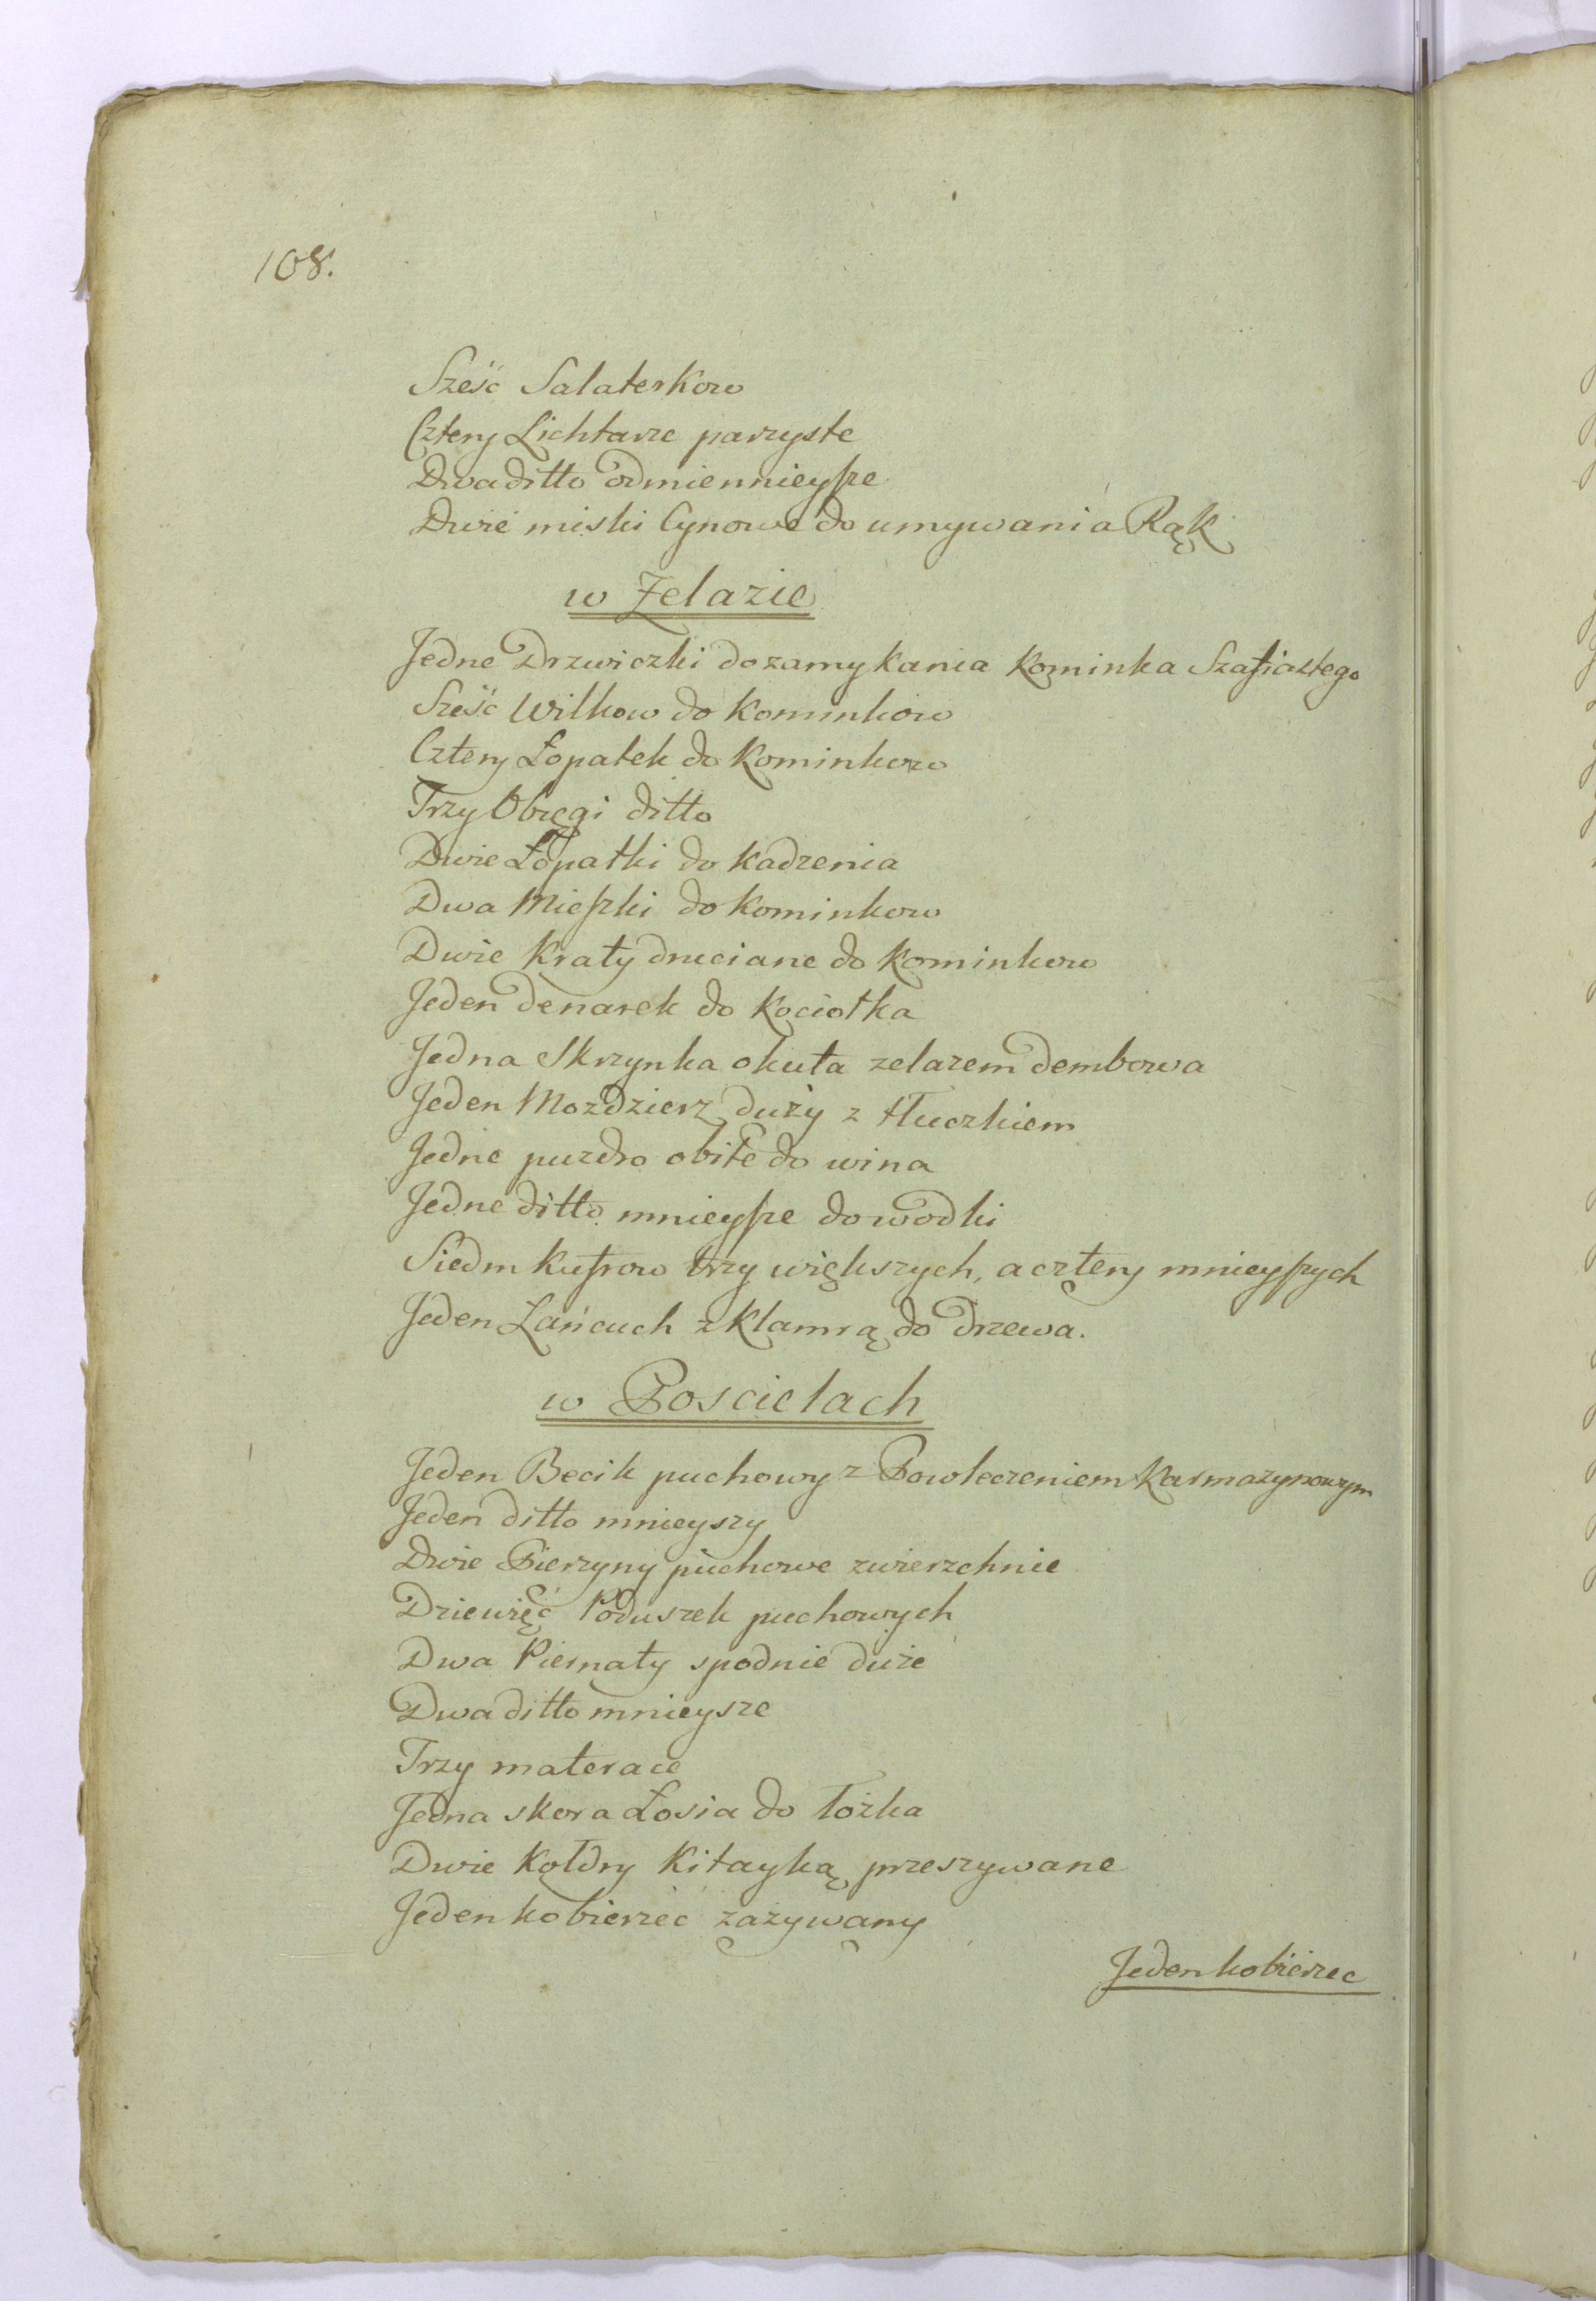 108.
Sześć Salaterkow
Cztery Lichtarze parzyste
Dwa ditto odmiennieysze
Dwie miski Cynowe do umywania Rąk
w Zelazie
Jedne Drzwiczki do zamykania Kominka Szafiastego
Sześć Wilkow do Kominkow
Cztery Łopatek do Kominkow
Trzy Obcęgi ditto
Dwie Łopatki do Kadzenia
Dwa Mieszki do Kominkow
Dwie Kraty druciane do Kominkow
Jeden denarek do Kociołka
Jedna Skrzynka okuta zelazem dembowa
Jeden Mozdzierz duży z tłuczkiem
Jedne puzdro obite do wina
Jedne ditto mnieysze do wodki
Siedm Kufrow trzy większych, a cztery mnieyszych
Jeden Łańcuch z Klamrą do Drzewa.
w Poscielach
Jeden Becik puchowy z Powleczeniem Karmazynowym
Jeden ditto mnieyszy
Dwie Pierzyny puchowe zwierzchnie
Dziewięć Poduszek puchowych
Dwa Piernaty spodnie duże
Dwa ditto mnieysze
Trzy materace
Jedna skora Łosia do łożka
Dwie Kołdry Kitayką przeszywane
Jeden kobierzec zażywany
Jeden kobierzec